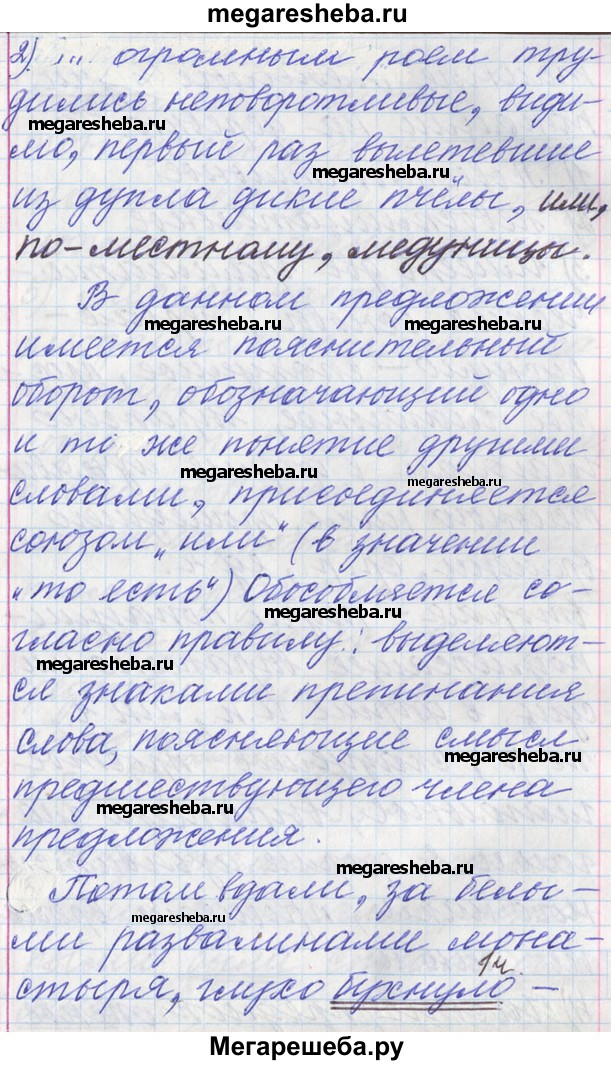 megaresheba.ru
2) ... огромным роем тру-
дились неповоротливые, види-
megaresheba.ru
мо, первый раз вылетевшие
megaresheba.ru
из дупла дикие пчёлы, или,
по-местному, медуницы.
В данном предложении
megaresheba.ru megaresheba.ru
имеется пояснительный
оборот, обозначающий одно
и то же понятие другими
megaresheba.ru megaresheba.ru
словами, присоединяется
союзом „или“ (в значении
„то есть“) Обособляется со-
megaresheba.ru
гласно правилу: выделяют-
megaresheba.ru
ся знаками препинания
слова, поясняющие смысл
megaresheba.ru
предшествующего члена
megaresheba.ru
предложения.
megaresheba.ru
Потом вдали, за белы-
megaresheba.ru
ми развалинами мона-
1ч.
стыря, глухо бухнуло -
Мегарешеба.ру